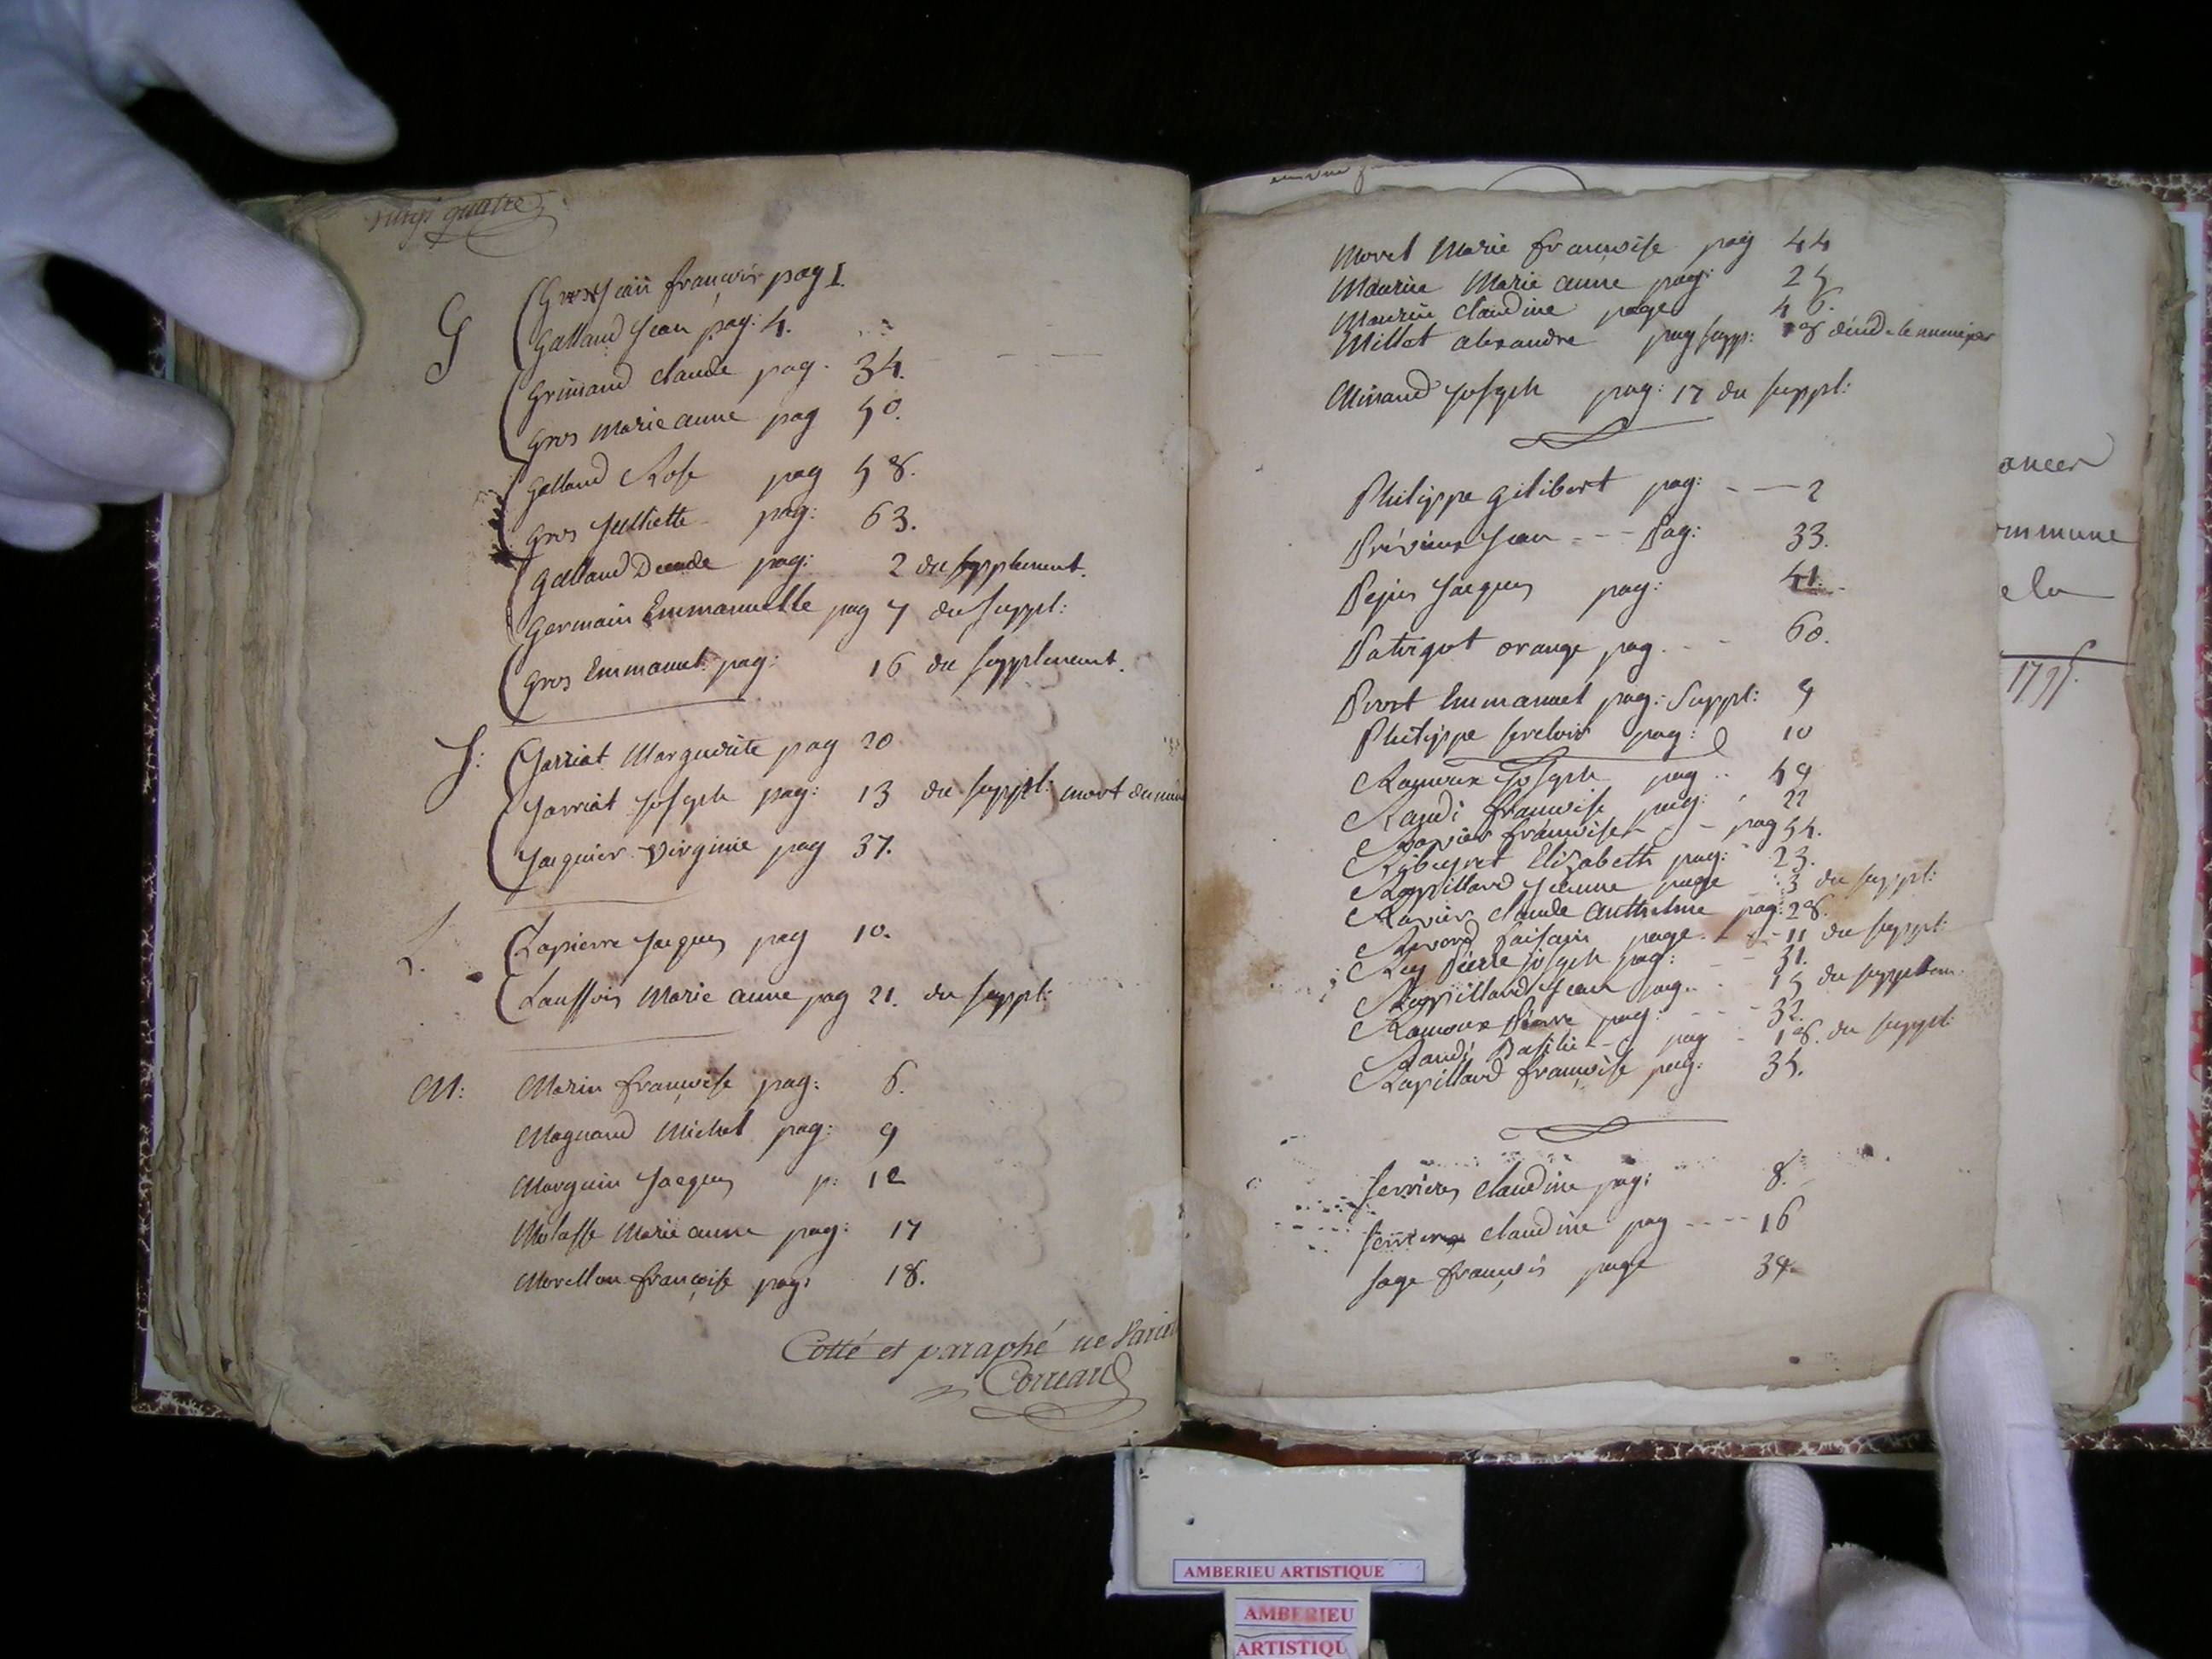 vingt quatre
G
Grosjean françois pag 1.
Galland Jean pag: 4.
Grimaud claude pag. 34.
Gros Marie anne pag 50.
Galland Rose pag 58.
Gros Julliette pag: 63.
Galland pag: 2 du supplement.
Germain Emmanuelle pag 7 du suppl:
Gros Emmanuel pag: 16 du supplement.
J:
Jarriat Marguerite pag 20
Jarriat Joseph pag: 13 du suppl: mort
Jacquier Virginie pag 37.
L.
Lapierre Jacques pag 10.
Laussois Marie anne pag 21. du suppl:
M:
Marin françoise pag: 6.
Magnand Michel pag: 9
Marguin Jacques p: 12
Molasse Marie anne pag: 17
Morellon françoise pag: 18.
Cotté et paraphé ne
Correard
Morel Marie françoise pag 44
Maurin Marie anne pag: 25
Maurin Claudine page 46.
Millet alexandre pag supp: 18
Minand Joseph pag: 17 du suppl:
Philippe Gilibert pag: - — 2
Prévieux Jean - - - Pag: 33.
Pejus Jacques pag: 41.
Patigot orange pag. - - 60.
Pivot Emmanuel pag: Suppl: 9
Philippe pag: 10
Ramoux Joseph pag .. 49
Randi françoise pag: 22
Ravier françoise - - pag 54.
Elizabeth pag: 23.
Rappillard Jeanne page 3 du suppl:
Ravier Claude Anthelme pag: 28.
Revond page. - - 11 du suppl:
Rey Pierre Joseph pag: - - 31.
Rappillard Jean pag. - 15 du supplem.
Ramoux Pierre pag: - - - 32.
Randi Basile - - pag - 18. du suppl:
Rapillard françoise pag: 35.
Serrieres Claudine pag: 8.
claudine pag - - - - 16
Sage françois page 39.
ancer
ommune
ela
AMBERIEU ARTISTIQUE
AMBERIEU
ARTISTIQU